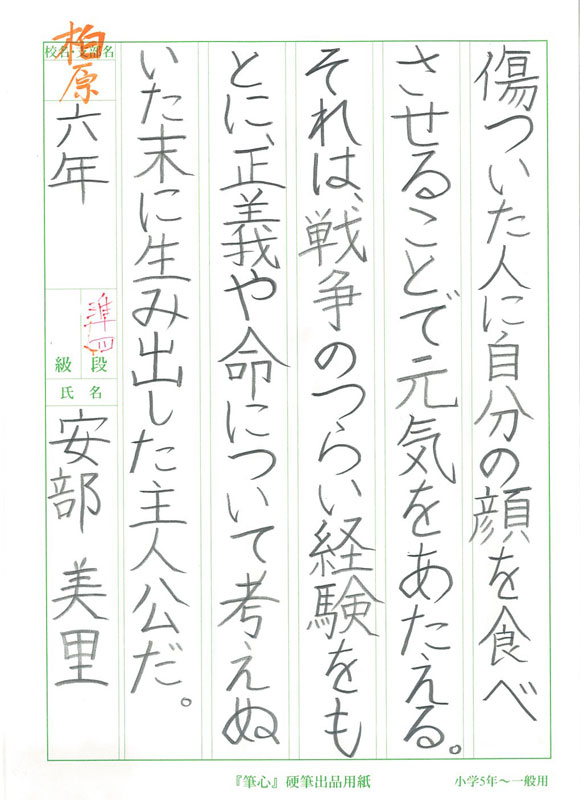 傷ついた人に自分の顔を食べ
させることで元気をあたえる。
それは、戦争のつらい経験をも
とに、正義や命について考えぬ
いた末に生み出した主人公だ。
校名・支部名
柏原
六年
準四
級 段
氏名
安部 美里
『筆心』硬筆出品用紙
小学5年〜一般用